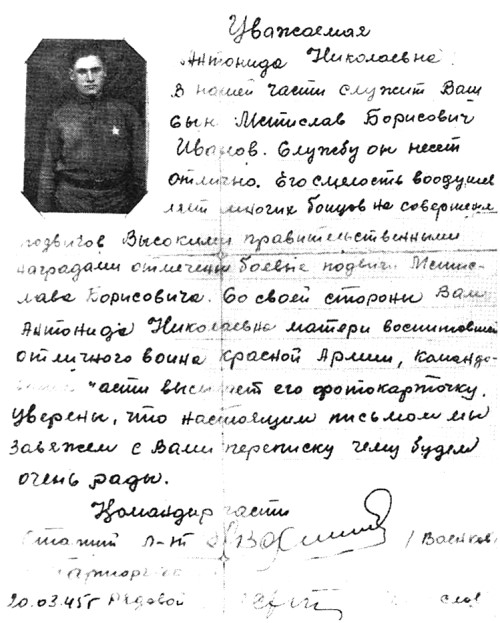 Уважаемая
Антонида Николаевна
В нашей части служит Ваш
сын Мстислав Борисович
Иванов. Службу он несет
отлично. Его смелость воодушев
ляет многих бойцов на совершение
подвигов Высокими правительственными
наградами отмечены боевые подвиги Мстис-
лава Борисовича. Со своей стороны Вам
Антонида Николаевна матери воспитавшей
отличного воина Красной Армии, командо-
части высылает его фотокарточку.
Уверены, что настоящим письмом мы
завяжем с Вами переписку чему будем
очень рады.
Командир части
Старший л-нт
20.03.45г Рядовой